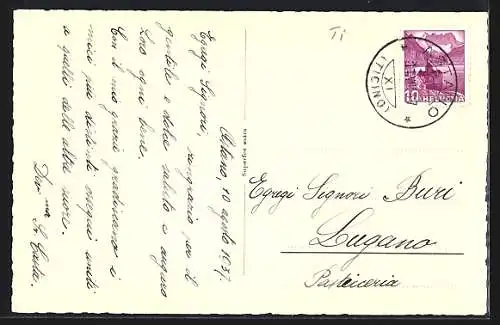 Astano, 10 agosto 1937.
Egregi Signori,
ringrazio per il
gentile e dolce saluto e auguro
Loro ogni bene.
Con il mio grazie gradiscano i
miei più distinti ossequi uniti
a quelli delle altre suore.
Dev ma Sr
Ti
ASTANO
XI
(TICINO)
10
HELVETIA
Egregi Signori Buri
Lugano
Pasticceria